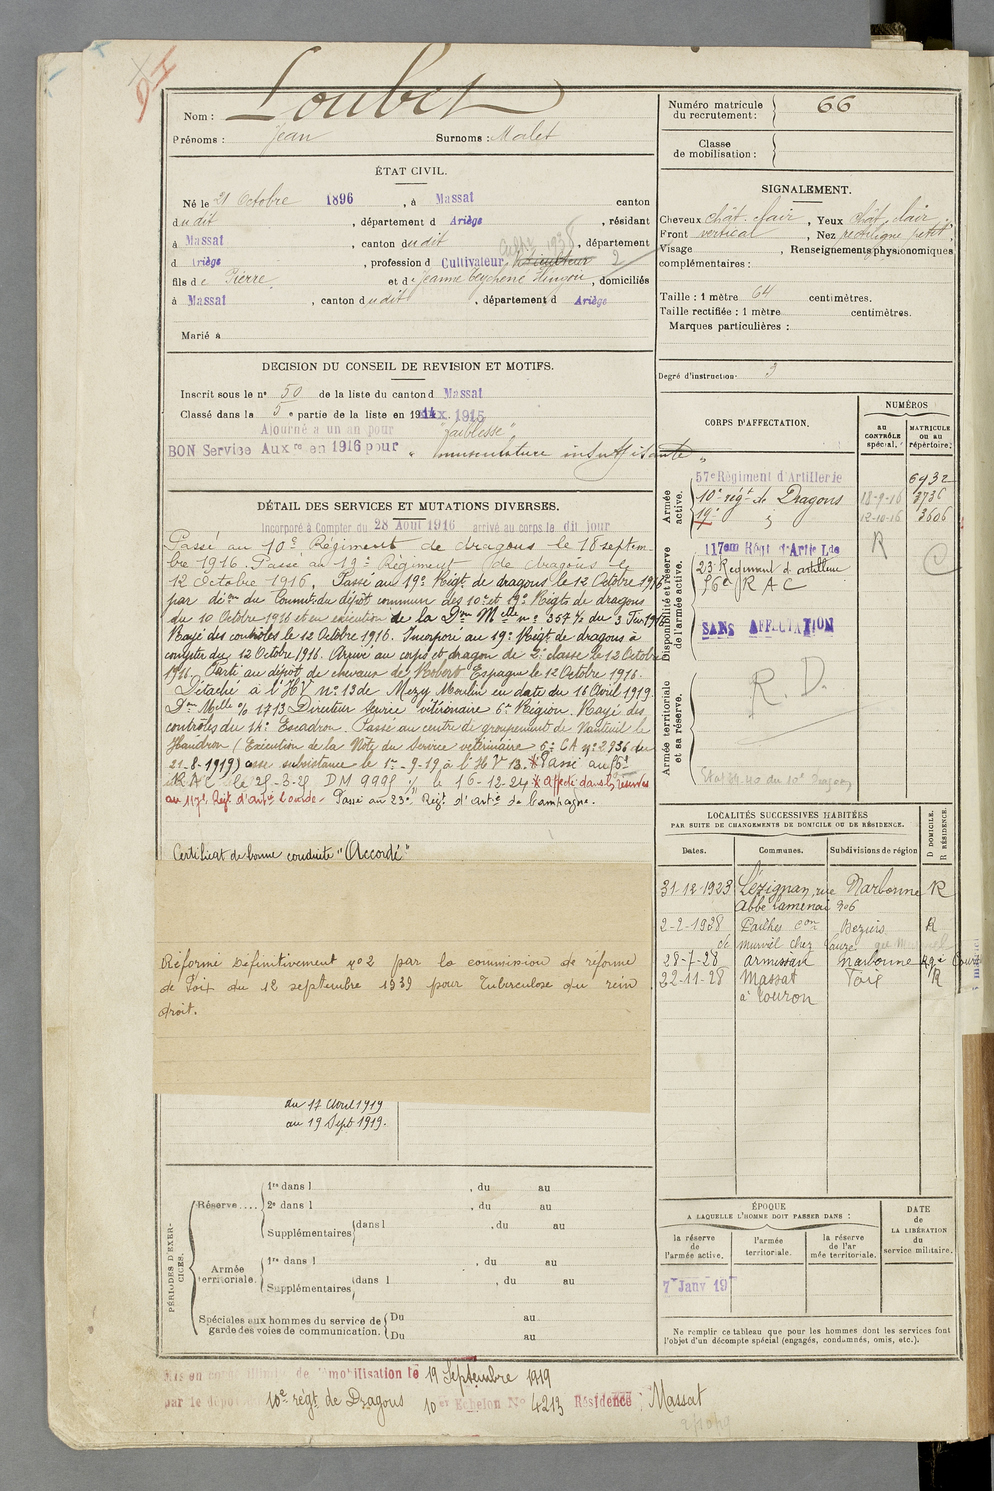 Nom : Loubet
Prénoms : Jean Surnoms : Malet
ÉTAT CIVIL.
Né le 21 Octobre 1896, à Massat canton
dudit, département d Ariège, résidant
à Massat, canton dudit, département
d Ariège, profession d Cultivateur
fils de Pierre et de Jeanne Beychène Hingou, domiciliés
à Massat, canton dudit, département d Ariège
Marié à
DECISION DU CONSEIL DE REVISION ET MOTIFS.
Inscrit sous le nº 50 de la liste du canton d Massat
Classé dans le 5e partie de la liste en 1915
Ajourné à un an pour "faiblesse"
BON Service Auxre en 1916 pour " musculature insuffisante "
DÉTAIL DES SERVICES ET MUTATIONS DIVERSES.
Incorporé à Compter du 28 Août 1916 arrivé au corps le dit jour
Passé au 10e Régiment de dragons le 18 septem-
bre 1916. Passé au 19e Régiment de dragons le
12 Octobre 1916. Passé au 19e Régt de dragons le 12 Octobre 1916
par déon du Commt du dépôt commun des 10e et 19e Régts de dragons
du 10 Octobre 1916 et en exécution de la Don Melle nº 3577/2 du 3
Rayé des contrôles le 12 Octobre 1916. Incorporé au 19e Régt de dragons à
compter du 12 Octobre 1916. Arrivé au corps et dragon de 2e classe le 12 Octobre
1916. Parti au dépôt de chevaux de Robert Espagne le 12 Octobre 1916.
Détaché à l'HV nº 13 de Mezy Moulin en date du 16 Avril 1919.
Don Melle % 1713 Directeur Service vétérinaire 6e Région. Rayé des
contrôles du 14e Escadron. Passé au centre de groupement de Nanteuil le
Haudron (Exécution de la Note du Service vétérinaire 6e CA nº 2936 du
21-8-1919) asse subsistance le 1er-9-19 à l'HV 13. * Passé au 56e
RAC le 25-3-25 DM 9995 le 16-12-24 * Affecté dans les réserves
au 117e Régt d'artie Lourde. Passé au 23e Régt d'artie de Campagne.
Certificat de bonne conduite "Accordé"
Réformé définitivement nº2 par la commission de réforme
de Foix du 12 septembre 1939 pour Tuberculose du rein
droit.
du 17 Avril 1919
au 19 Sept 1919.
PÉRIODES D'EXERCICES.
Réserve....
1re dans l , du au
2e dans l , du au
Supplémentaires dans l , du au
Armée territoriale.
1re dans l , du au
Supplémentaires dans l , du au
Spéciales aux hommes du service de garde des voies de communication.
Du au
Du au
Mis en congé illimité de démobilisation le 19 Septembre 1919
par le dépôt 10e régt de Dragons 10e Echelon Nº 4213 Résidence : Massat
Numéro matricule du recrutement : 66
Classe de mobilisation :
SIGNALEMENT.
Cheveux chât. clair, Yeux chât. clair
Front vertical, Nez rectiligne petit
Visage , Renseignements physionomiques
complémentaires :
Taille : 1 mètre 64 centimètres.
Taille rectifiée : 1 mètre centimètres.
Marques particulières :
Degré d'instruction 3
CORPS D'AFFECTATION. NUMÉROS
AU CONTRÔLE spécial. MATRICULE OU AU répertoire.
Armée active.
57e Régiment d'Artillerie 6932
10e régt de Dragons 18-9-16 3736
19e 12-10-16 3606
Disponibilité et réserve de l'armée active.
117em Régt d'Artie Lde R C
23e Régiment d'artillerie
56e RAC
SANS AFFECTATION
Armée territoriale et sa réserve.
R.D.
LOCALITÉS SUCCESSIVES HABITÉES
PAR SUITE DE CHANGEMENTS DE DOMICILE OU DE RÉSIDENCE.
Dates. Communes. Subdivisions de région D DOMICILE. R RÉSIDENCE.
31-12-1923 Lézignan, rue Narbonne R
Abbé Lamenai
2-2-1928 Pailhès con Beziers R
de Murviel chez Faure
28-7-28 Armissan Narbonne R
22-11-28 Massat Foix R
à Louron
ÉPOQUE
A LAQUELLE L'HOMME DOIT PASSER DANS :
la réserve de l'armée active. l'armée territoriale. la réserve de l'armée territoriale.
DATE DE LA LIBÉRATION du service militaire.
7 Janv 19
Ne remplir ce tableau que pour les hommes dont les services font
l'objet d'un décompte spécial (engagés, condamnés, omis, etc.).